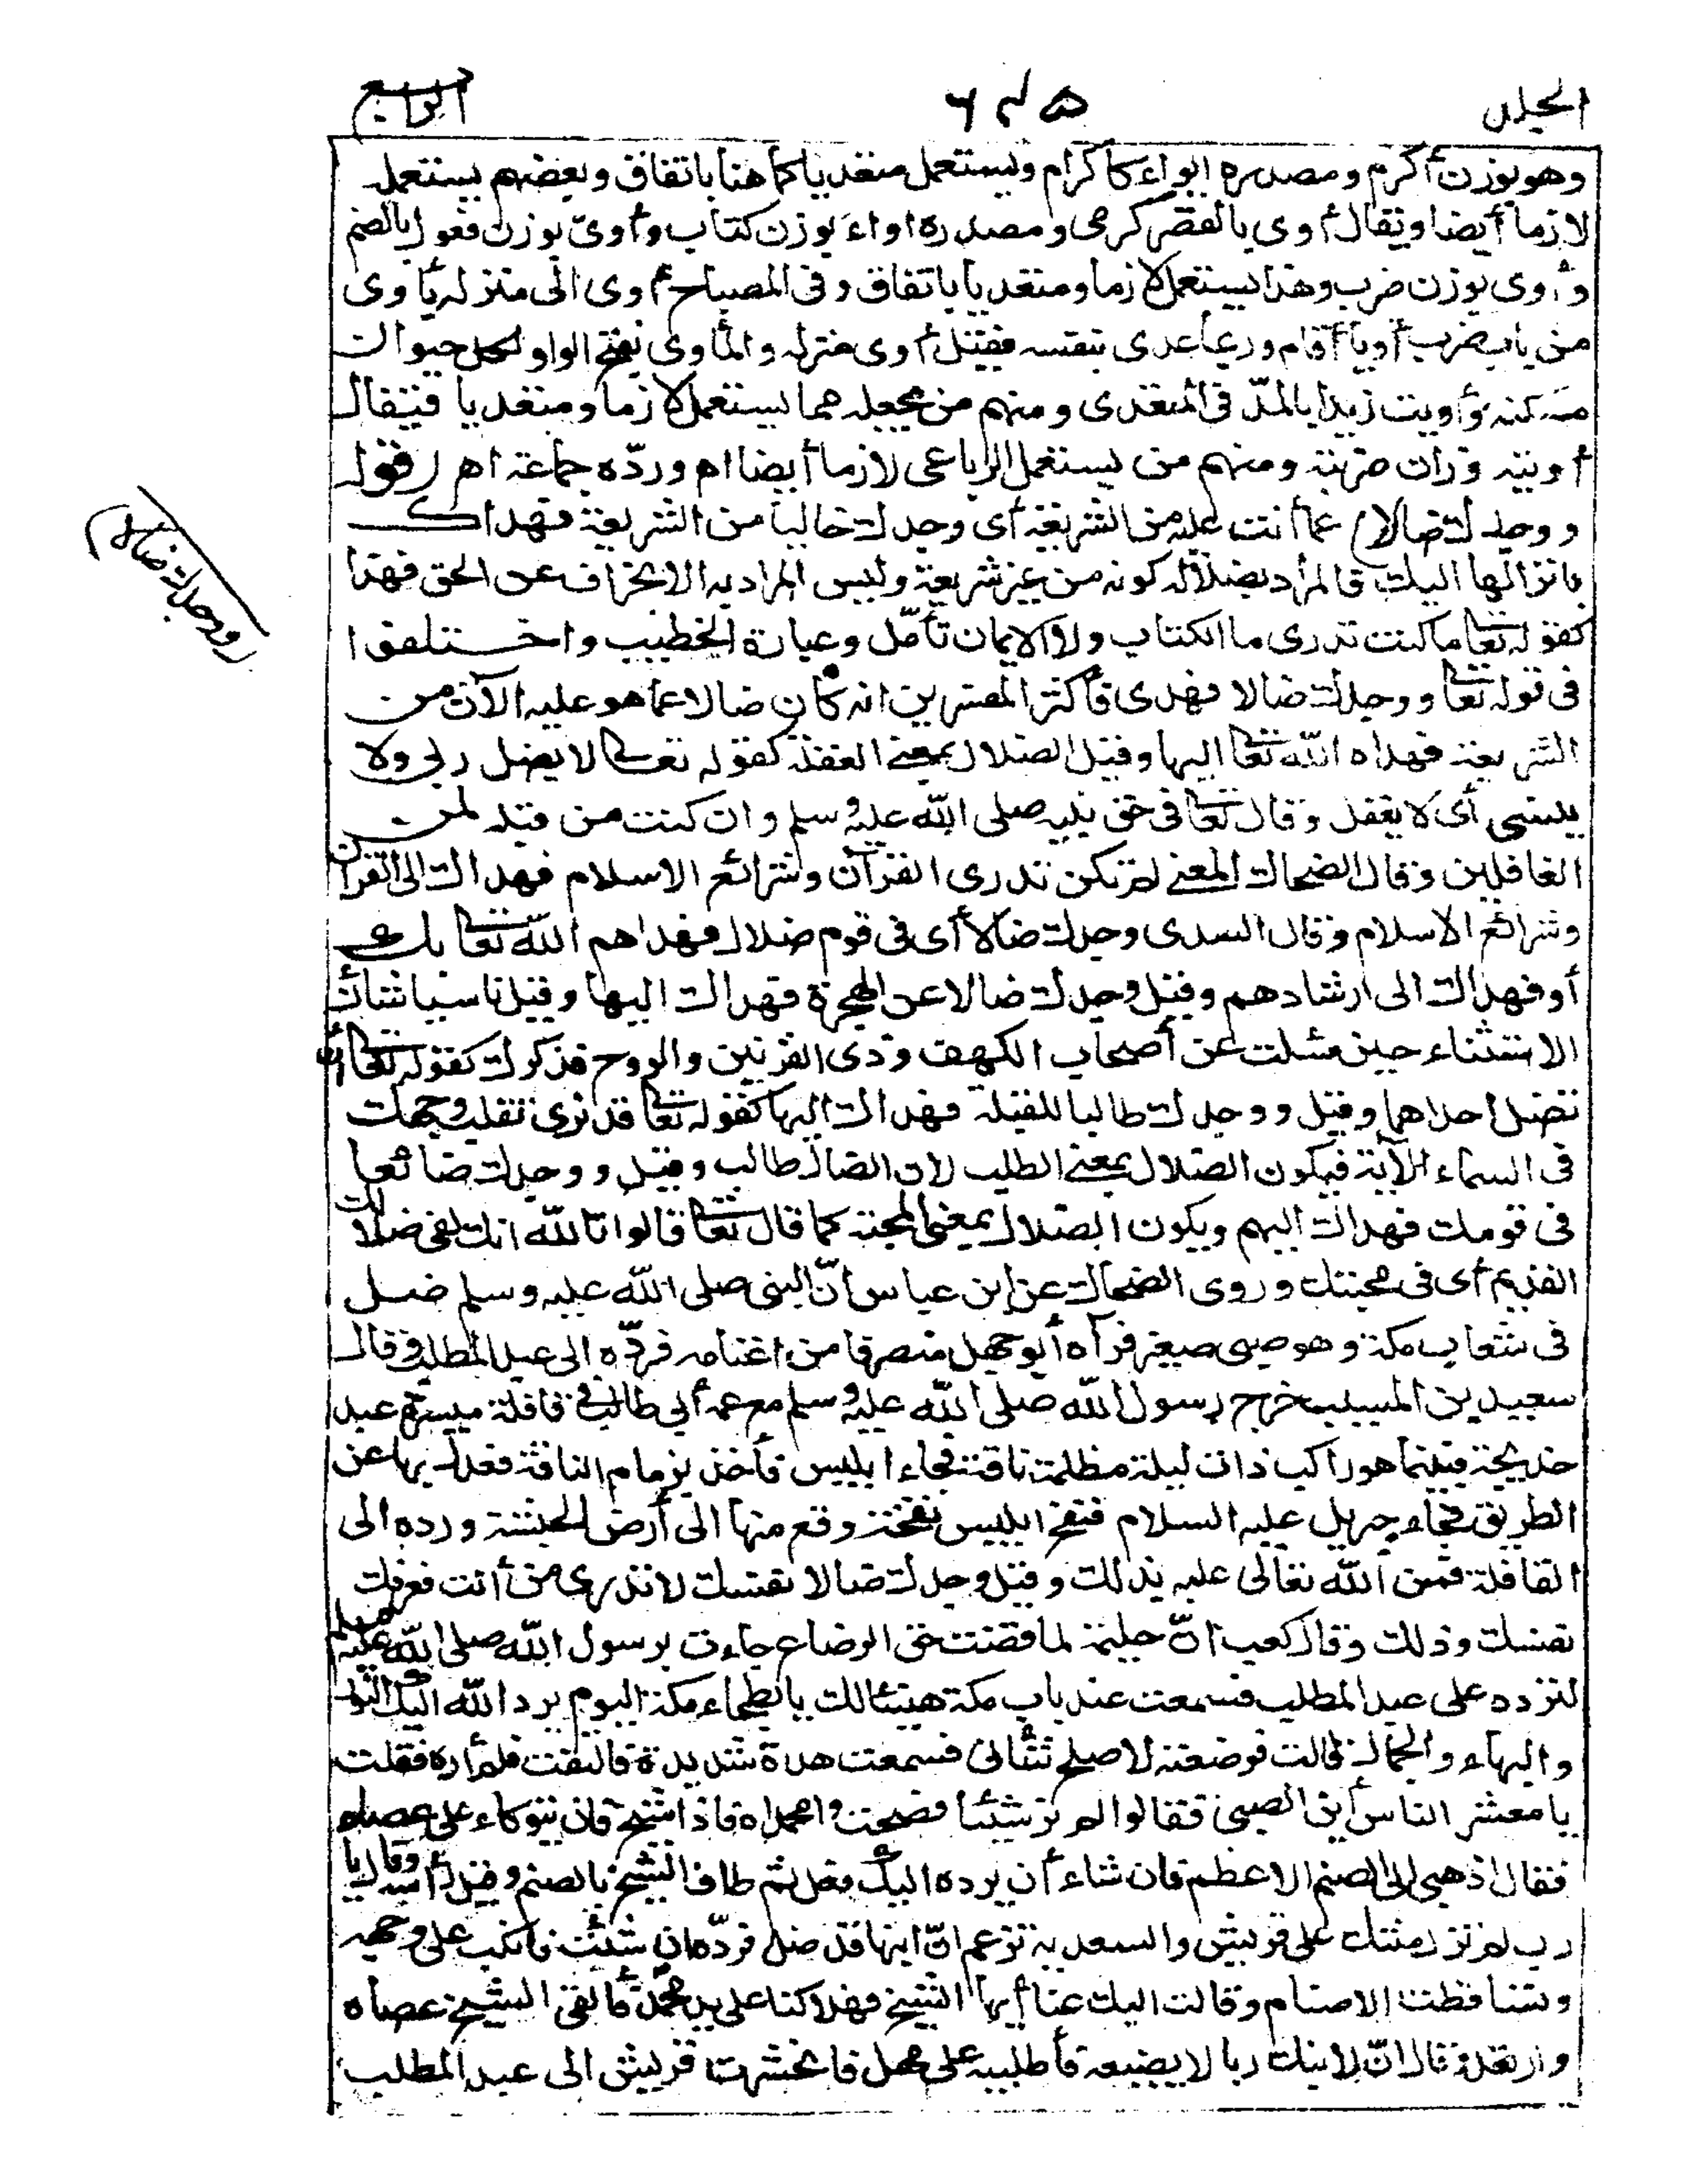 الجلد ٦٤٥ الرابع
وهو بوزن أكرم ومصدره ايواء كاكرام ويستعمل متعديا كما هنا باتفاق وبعضهم يستعمل
لازما أيضا ويقال أوى بالقصر كرمى ومصدره اواء بوزن كتاب وأوىّ بوزن فعول بالضم
وأوى بوزن ضرب وهذا يستعمل لازما ومتعديا باتفاق وفى المصباح أوى الى منزله يأوى
من باب ضرب أويا أقام وربما عدى بنفسه فقيل أوى منزله والمأوى بفتح الواو لكل حيوان
مسكنه وآويت زيدا بالمدّ فى المتعدى ومنهم من يجعله مما يستعمل لازما ومتعديا فيقال
أويته وزان ضربته ومنهم من يستعمل الرباعى لازما أيضا اهـ وردّه جماعة اهـ (قوله
ووجدك ضالا) عما أنت عليه من الشريعة أى وجدك خاليا من الشريعة فهداك
بانزالها اليك فالمراد بضلاله كونه من غير شريعة وليس المراد به الانحراف عن الحق فهذا
كقوله تعا ما كنت تدرى ما الكتاب ولا الايمان تأمّل وعبارة الخطيب واختلفوا
فى قوله تعا ووجدك ضالا فهدى فأكثر المفسرين انه كان ضالا عما هو عليه الآن من
الشريعة فهداه الله تعا اليها وقيل الضلال بمعنى الغفلة كقوله تعالى لا يضل ربى ولا
ينسى أى لا يغفل وقال تعا فى حق نبيه صلى الله عليه وسلم وان كنت من قبله لمن
الغافلين وقال الضحاك المعنى لم تكن تدرى القرآن وشرائع الاسلام فهداك الى القرآن
وشرائع الاسلام وقال السدى وجدك ضالا أى فى قوم ضلال فهداهم الله تعا بك
أو فهداك الى ارشادهم وقيل وجدك ضالا عن الهجرة فهداك اليها وقيل ناسيا شأن
الاستثناء حين سئلت عن أصحاب الكهف وذى القرنين والروح فذكرك كقوله تعا أن
تضل احداهما وقيل ووجدك طالبا للقبلة فهداك اليها كقوله تعا قد نرى تقلب وجهك
فى السماء الآية فيكون الضلال بمعنى الطلب لان الضال طالب وقيل ووجدك ضائعا
فى قومك فهداك اليهم ويكون الضلال بمعنى المحبة كما قال تعا قالوا تالله انك لفى ضلالك
القديم أى فى محبتك وروى الضحاك عن ابن عباس انّ النبى صلى الله عليه وسلم ضل
فى شعاب مكة وهو صبى صغير فرآه أبو جهل منصرفا من اغنامه فردّه الى عبد المطلب وقال
سعيد بن المسيب خرج رسول الله صلى الله عليه وسلم مع عمه أبى طالب فى قافلة ميسرة عبد
خديجة فبينما هو راكب ذات ليلة مظلمة ناقته فجاء ابليس فأخذ بزمام الناقة فعدل بها عن
الطريق فجاء جبريل عليه السلام فنفخ ابليس نفخة وقع منها الى أرض الحبشة ورده الى
القافلة فمن الله تعالى عليه بذلك وقيل وجدك ضالا نفسك لا تدرى من أنت فعرفك
نفسك وذلك وقال كعب انّ حليمة لما قضت حق الرضاع جاءت برسول الله صلى الله عليه وسلم
لترده على عبد المطلب فسمعت عند باب مكة هنيئا لك يا بطحاء مكة اليوم يرد الله اليك النور
والبهاء والجمال قالت فوضعته لاصلح شأنى فسمعت هدة شديدة فالتفت فلم أره فقلت
يا معشر الناس أين الصبى فقالوا لم نر شيئا فصحت وامحمداه فاذا شيخ فان يتوكاء على عصاه
فقال اذهبى الى الصنم الاعظم فان شاء أن يرده اليك فعل ثم طاف الشيخ بالصنم وقبل رأسه وقال يا
رب لم تزل منتك على قريش والسعدية تزعم انّ ابنها قد ضل فردّه ان شئت فانكب على وجهه
وتساقطت الاصنام وقالت اليك عنا أيها الشيخ فهلاكنا على يد محمد فألقى الشيخ عصاه
وارتعد وقال انّ لابنك ربا لا يضيعه فأطلبيه على مهل فانحشرت قريش الى عبد المطلب
(ووجدك ضالا)